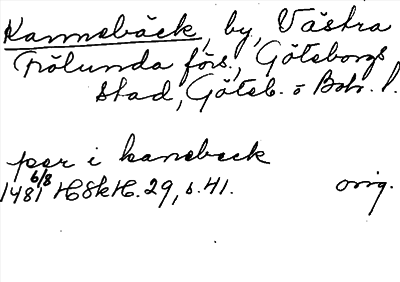 Kannebäck, by, Västra
Frölunda förs., Göteborgs
stad, Göteb. o Boh. l.
per i kanebeck
1481 6/8 HSkH. 29, s. 41. orig.